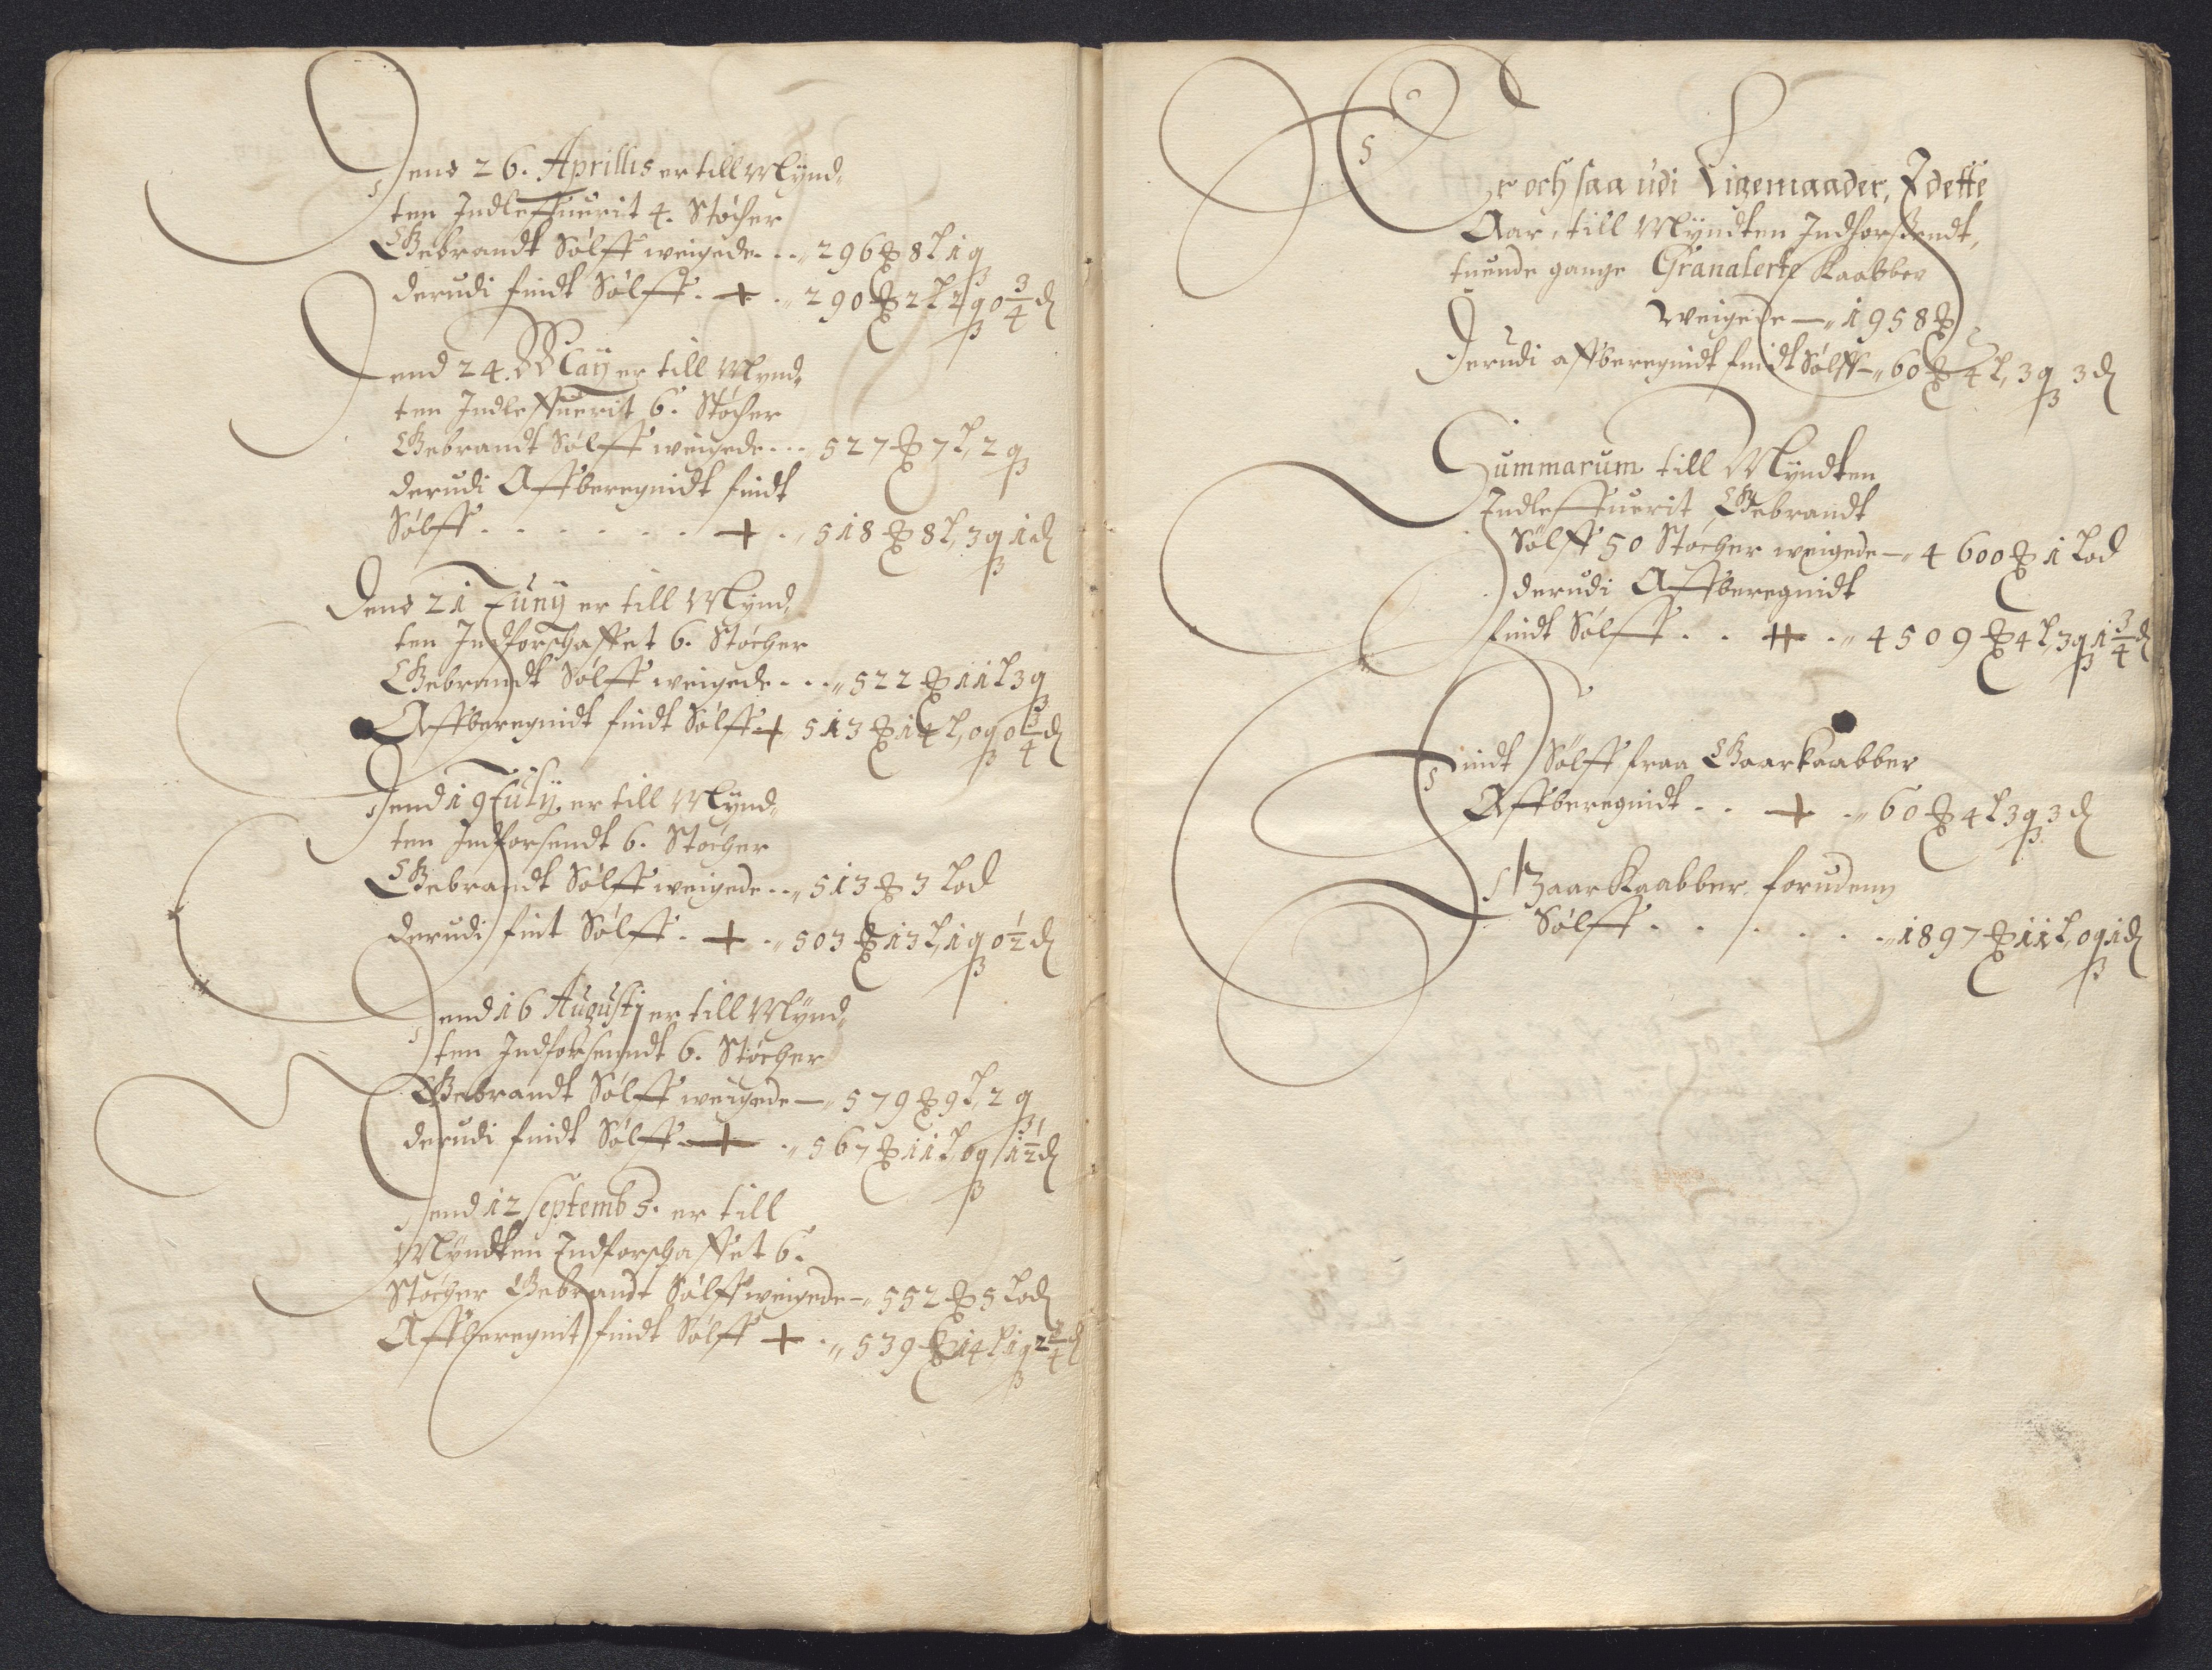 Dend 26. Aprillis er till Mÿnd-
ten Indleffuerit 4. Støcher
Gebrandt Sølff weigede . . „ 296 ℔ 8 L 1 q
derudi findt Sølff . + . „ 290 ℔ 2 L 2 q 0 3/4 d
Dend 24. May er till Mynd-
ten Indleffuerit 6. Støcher
Gebrandt Sølff weigede . . . 527 ℔ 7 L, 2 q
derudi Affberegnidt findt
Sølff . . . . . . + . „ 518 ℔ 8 L, 3 q 1 d
Dend 21 Junÿ er till Mÿnd-
ten Indforschaffet 6. Støcher
Gebrandt Sølff weigede . . . „ 522 ℔ 11 L 3 q
Affberegnidt findt Sølff + 513 ℔ 14 L, 0 q 0 3/4 d
Dend 19 Julÿ er till Mÿnd-
ten Indforsendt 6. Støcher
Gebrandt Sølff weigede . . „ 513 ℔ 3 Lod
derudi fint Sølff . + . „ 503 ℔ 13 L, 1 q 0 1/2 d
Dend 16 Augustj er till Mÿnd-
ten Indforsenndt 6. Støcher
Gebrandt Sølff weigede — „ 579 ℔ 9 L, 2 q
derudi findt Sølff + . „ 567 ℔ 11 L, 0 q 1 1/2 d
Dend 12 Septemb 5. er till
Mÿndten Indforschaffet 6.
Støcher Gebrandt Sølff weigede — „ 552 ℔ 5 Lod
Affberegnit findt Sølff + . „ 539 ℔ 14 L 1 q 2 3/4 d
Er och saa udi Ligemaader, I dette
Aar, till Mÿndten Indforsendt,
tuende gange Granalerte Kaabber
weigede — „ 1958 ℔
Derudi affberegnidt findt Sølff — „ 60 ℔ 4 L, 3 q 3 d
Summarum till Mÿndten
Indleffuerit Gebrandt
Sølff 50 Støcher weigede — „ 4600 ℔ 1 Lod
derudi Affberegnidt
findt Sølff . . ++ . „ 4509 ℔ 4 L, 3 q 1 3/4 d
Findt Sølff fraa Gaarkaabber
Affberegnidt . . + . „ 60 ℔ 4 L 3 q 3 d
Gaar Kaabber foruden
Sølff . . . . . . „ 1897 ℔ 11 L, 0 q 1 d